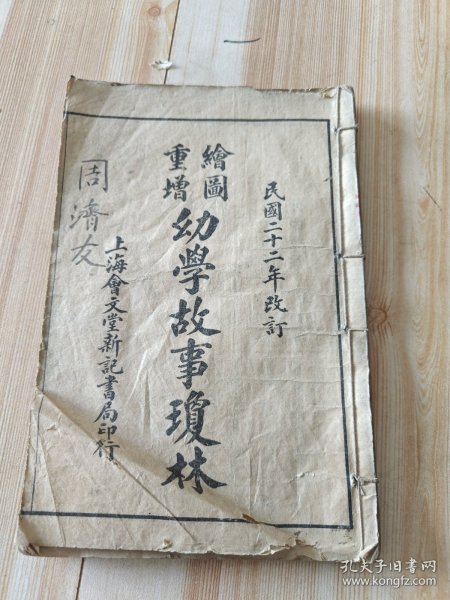 民國二十二年改訂
繪圖
重增
幼學故事瓊林
上海會文堂新記書局印行
周濟友
孔夫子旧书网
www.kongfz.com